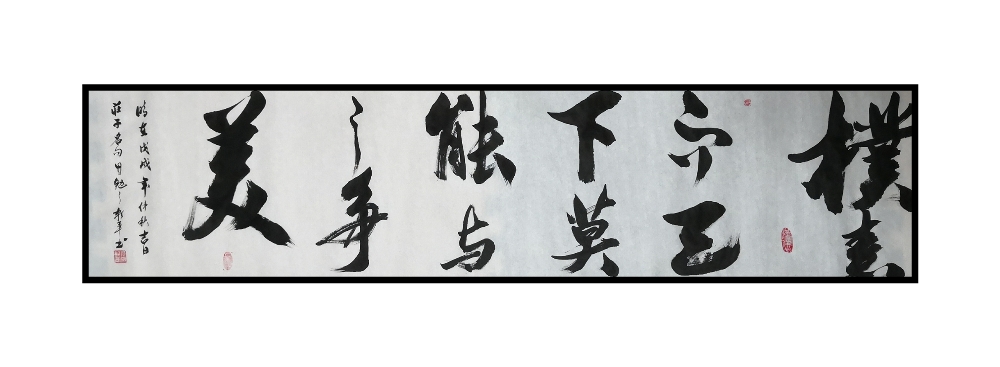 樸素
而天
下莫
能与
之争
美
时在戊戌年仲秋吉日
莊子名句 书